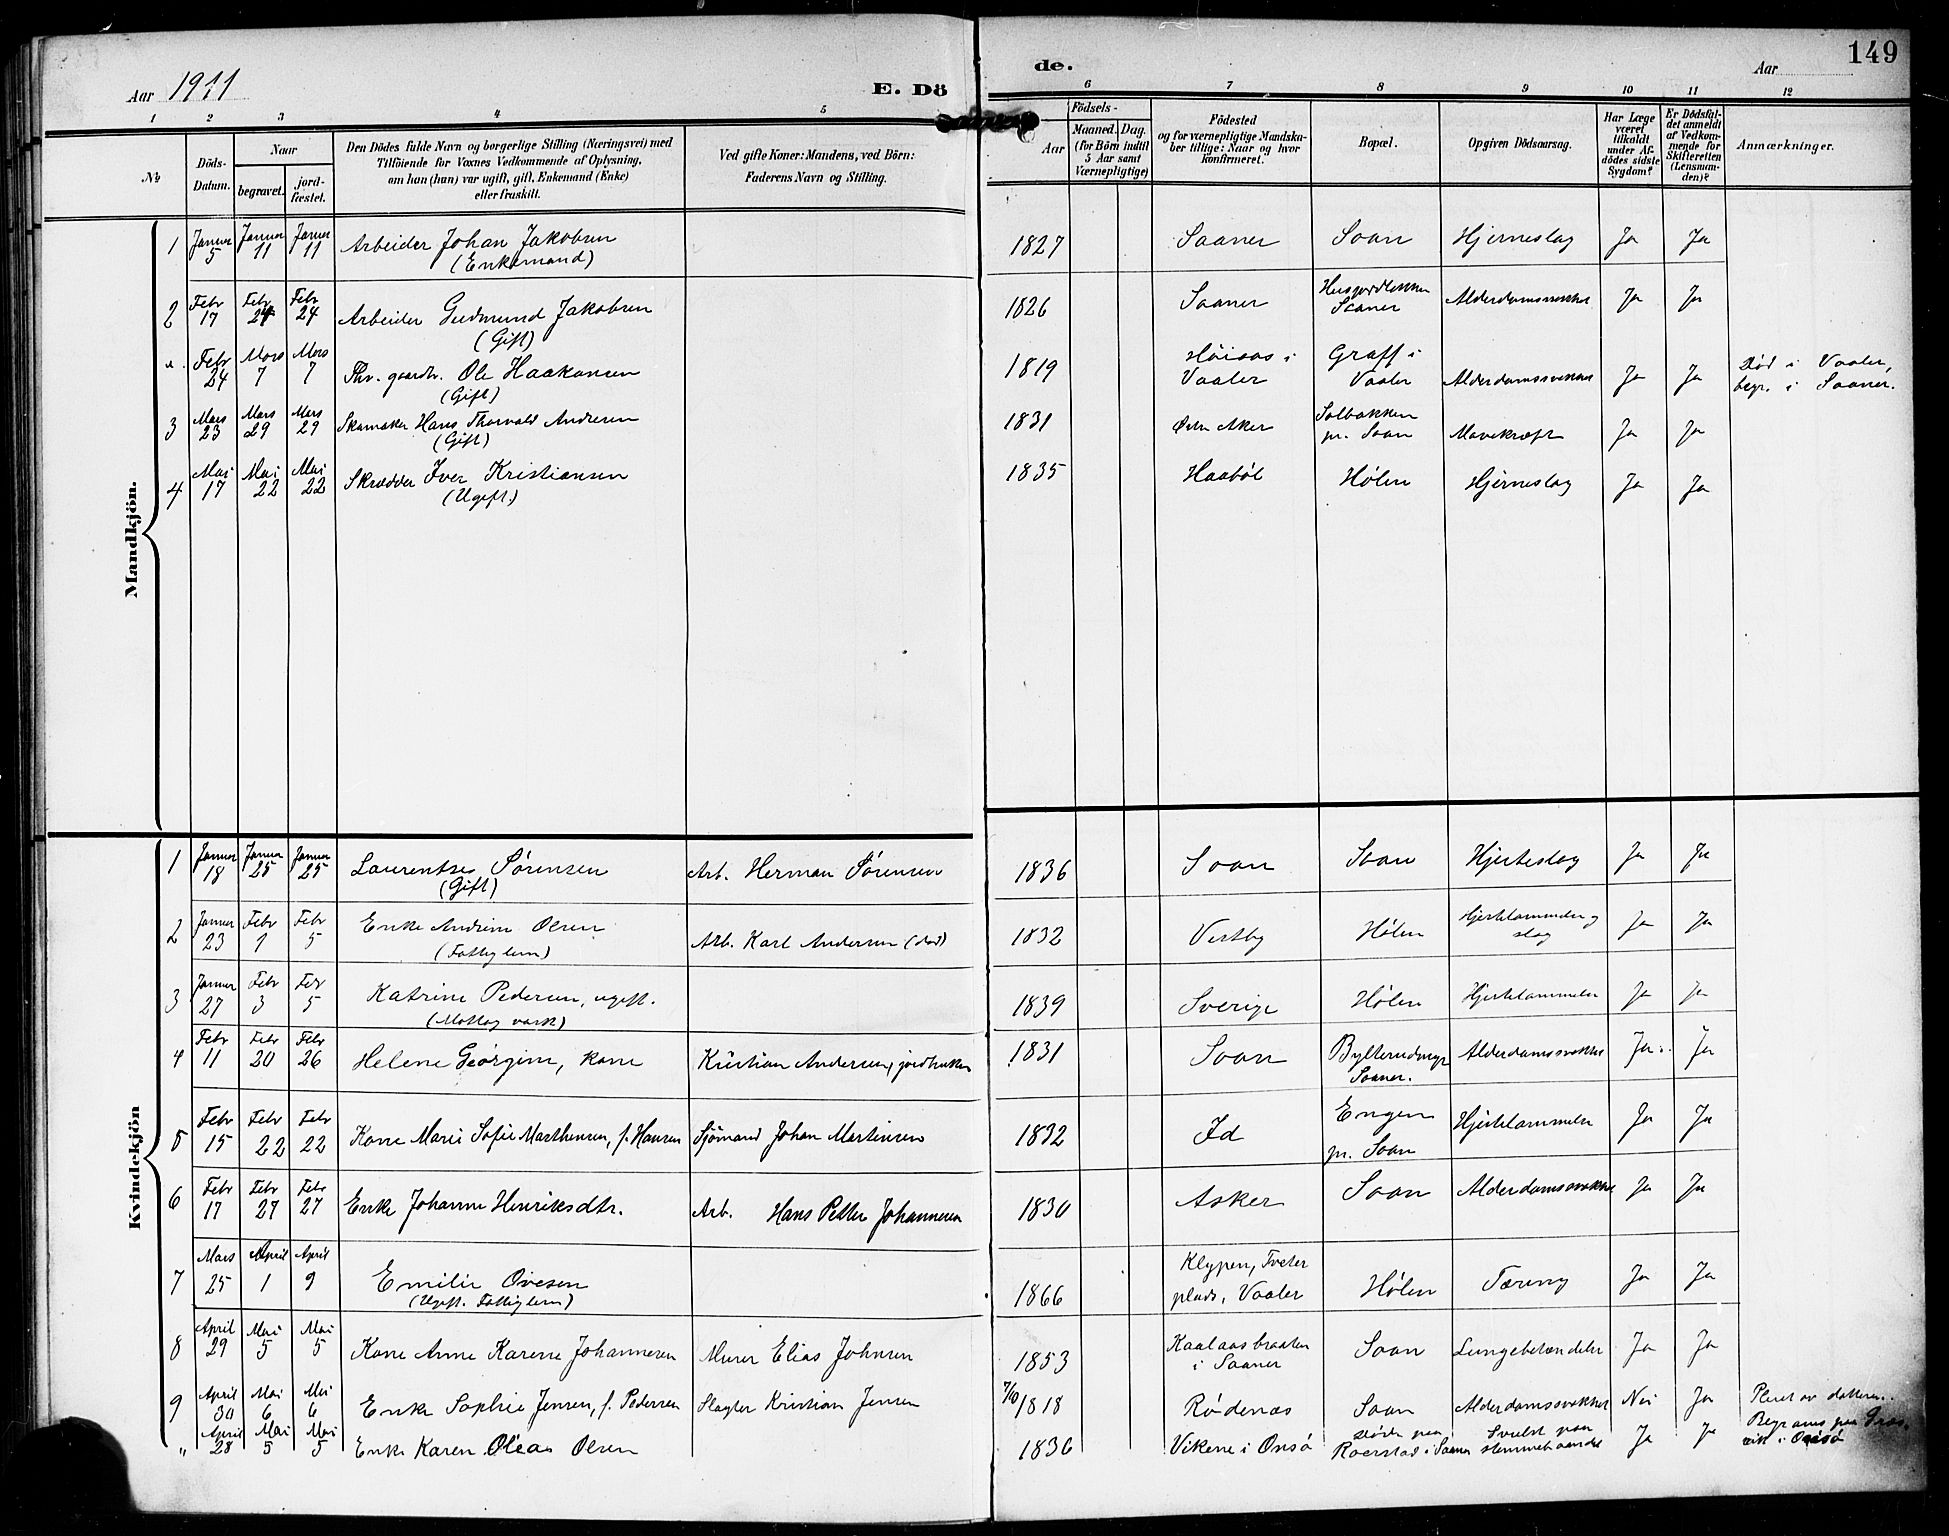 149
Aar 1911
E. Dö
de.
Aar
1 2 3 4 5 6 7 8 9 10 11 12
№
Döds-Datum.
Naar
begravet.
jord-fæstet.
Den Dödes fulde Navn og borgerlige Stilling (Næringsvei) med
Tilföiende for Voxnes Vedkommende af Oplysning,
om han (hun) var ugift, gift, Enkemand (Enke)
eller fraskilt.
Ved gifte Koner: Mandens, ved Börn:
Faderens Navn og Stilling.
Födsels-
Aar
Maaned. Dag.
(for Börn indtil
5 Aar samt
Værnepligtige)
Födested
og for værnepligtige Mandska-
ber tillige: Naar og hvor
konfirmeret.
Bopæl.
Opgiven Dödsaarsag.
Har Læge
været
tilkaldt
under Af-
dödes sidste
Sygdom?
Er Dödsfal-
det anmeldt
af Vedkom-
mende for
Skifteretten
(Lensman-
den)?
Anmærkninger.
Mandkjön.
1 Januar 5 Januar 11 Januar 11 Arbeider Johan Jakobsen (Enkemand) 1827 Saaner Soon Hjerneslag Ja Ja
2 Febr 17 Febr 24 Febr 24 Arbeider Gudmund Jakobsen (Gift) 1826 Saaner Saaner Alderdomssvækkelse Ja Ja
Febr 24 Mars 7 Mars 7 Fhv. gaardbr. Ole Haakonsen (Gift) 1819 Høiaas i Vaaler Graff i Vaaler Alderdomssvækkelse Ja Ja Død i Vaaler, begr. i Saaner.
3 Mars 23 Mars 29 Mars 29 Skomaker Hans Thorvald Andresen (Gift) 1831 Østre Aker Solbakken pr. Soon Mavekræft Ja Ja
4 Mai 17 Mai 22 Mai 22 Skrædder Iver Kristiansen (Ugift.) 1835 Haabøl Hølen Hjerneslag Ja Ja
Kvindekjön
1 Januar 18 Januar 25 Januar 25 Laurentse Sørensen (Gift) Arb. Herman Sørensen 1836 Soon Soon Hjerteslag Ja Ja
2 Januar 23 Febr 1 Febr 5 Enke Andrine Olsen (Fattiglem) Arb. Karl Andersen (død) 1832 Vestby Hølen slag Ja Ja
3 Januar 27 Febr 3 Febr 5 Katrine Pedersen, ugift. 1839 Sverige Hølen Hjertelammelse Ja Ja
4 Febr 11 Febr 20 Febr 26 Helene Georgine, kone Kristian Andersen, jordbruker 1831 Soon Saaner. Alderdomssvækkelse Ja Ja
5 Febr 15 Febr 22 Febr 22 Kone Marie Sofie Marthinsen, f. Hansen Sjömand Johan Martinsen 1832 Id Engen pr. Soon Hjertelammelse Ja Ja
6 Febr 17 Febr 27 Febr 27 Enke Johanne Henriksdtr. Arb. Hans Petter Johannesen 1830 Asker Soon Alderdomssvækkelse Ja Ja
7 Mars 25 April 1 April 9 Emilie Ovesen (Ugift. Fattiglem) 1866 Klypen, Tveter plads, Vaaler Hølen Tæring Ja Ja
8 April 29 Mai 5 Mai 5 Kone Anne Karene Johannesen Murer Elias Johnsen 1853 Kaalaasbraaten i Saaner Soon Lungebetændelse Ja Ja
9 April 30 Mai 6 Mai 6 Enke Sophie Jensen, f. Pedersen Slagter Kristian Jensen 7/10 1818 Rødenæs Soon Alderdomssvækkelse Nei Ja Pleiet av datteren.
" April 28 Mai 5 Mai 5 Enke Karen Oleas Olsen 1836 Vikene i Onsø døde paa Roerstad i Saaner Svulst paa stemmebaandet Ja Ja i Onsø